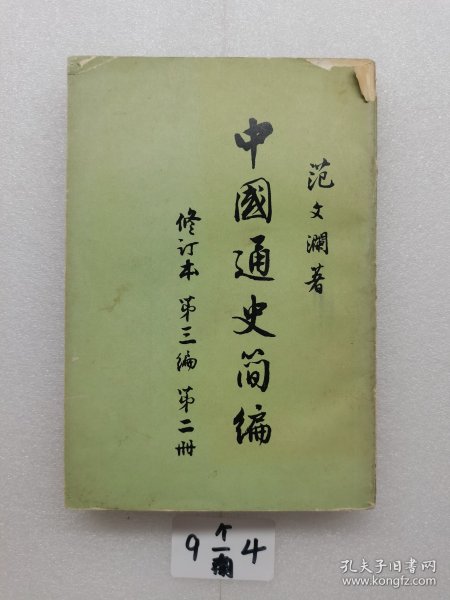 范文瀾著
中國通史简编
修订本 第三编 第二册
9 4
孔夫子旧书网
www.kongfz.com